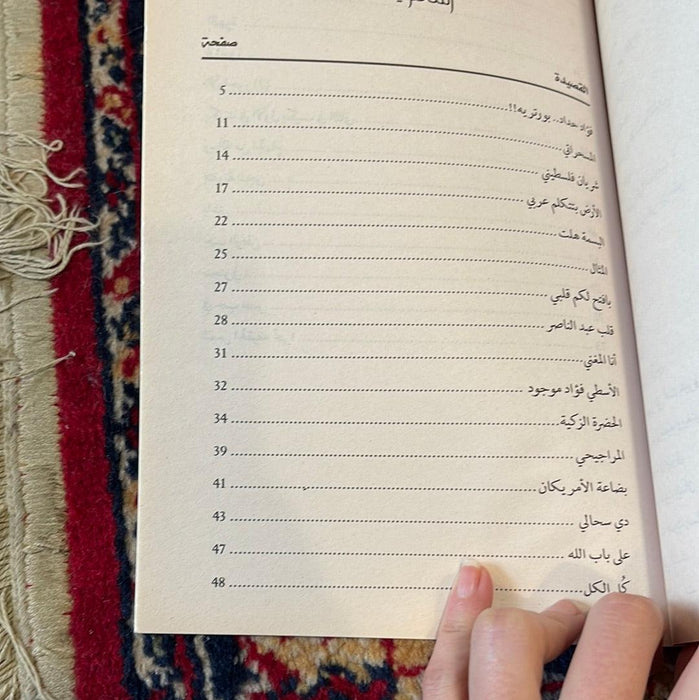 صفحة
القصيدة
فؤاد حداد.. بورتريه!! 5
المسحراتي 11
شريان فلسطيني 14
الأرض بتتكلم عربي 17
البسمة هلت 22
المثال 25
بافتح لكم قلبي 27
قلب عبد الناصر 28
أنا المغني 31
الأسطي فؤاد موجود 32
الحضرة الزكية 34
المراجيحي 39
بضاعة الأمريكان 41
دي سحالي 43
على باب الله 47
كُل الكل 48